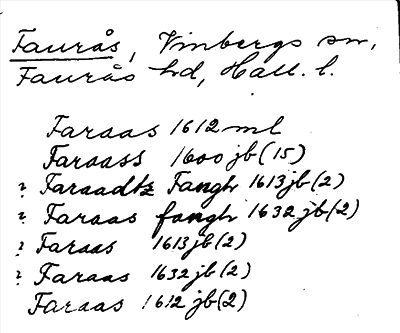 Faurås, Vinbergs sn,
Faurås hd, Hall. l.
Faraas 1612 ml
Faraass 1600 jb (15)
? Faraadtz Fangh 1613 jb (2)
? Faraas fangh 1632 jb (2)
? Faraas 1613 jb (2)
? Faraas 1632 jb (2)
Faraas 1612 jb (2)